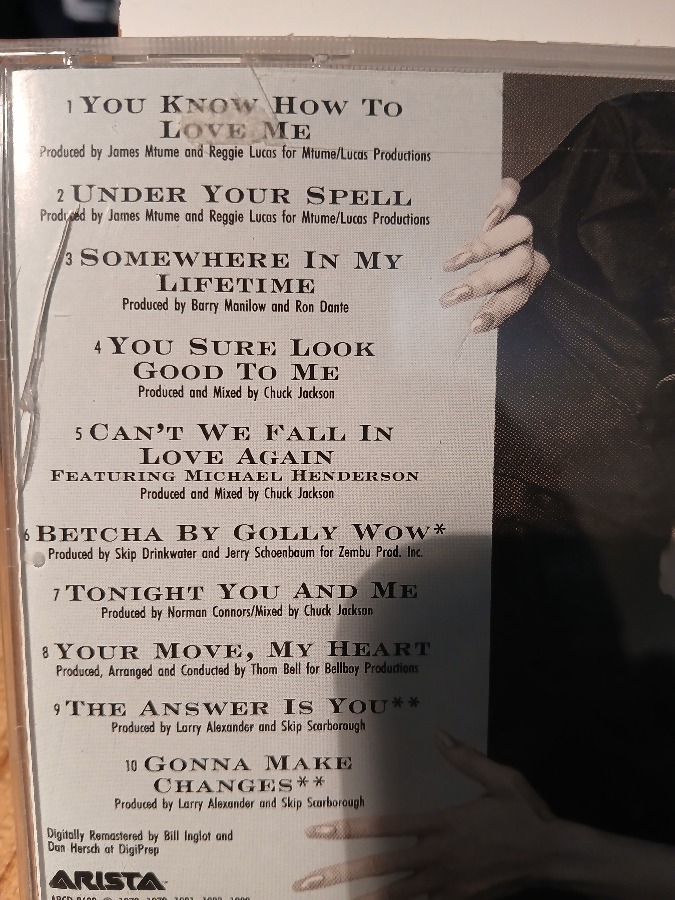 1 YOU KNOW HOW TO
LOVE ME
Produced by James Mtume and Reggie Lucas for Mtume/Lucas Productions
2 UNDER YOUR SPELL
Produced by James Mtume and Reggie Lucas for Mtume/Lucas Productions
3 SOMEWHERE IN MY
LIFETIME
Produced by Barry Manilow and Ron Dante
4 YOU SURE LOOK
GOOD TO ME
Produced and Mixed by Chuck Jackson
5 CAN'T WE FALL IN
LOVE AGAIN
FEATURING MICHAEL HENDERSON
Produced and Mixed by Chuck Jackson
6 BETCHA BY GOLLY WOW*
Produced by Skip Drinkwater and Jerry Schoenbaum for Zembu Prod. Inc.
7 TONIGHT YOU AND ME
Produced by Norman Connors/Mixed by Chuck Jackson
8 YOUR MOVE, MY HEART
Produced, Arranged and Conducted by Thom Bell for Bellboy Productions
9 THE ANSWER IS YOU**
Produced by Larry Alexander and Skip Scarborough
10 GONNA MAKE
CHANGES**
Produced by Larry Alexander and Skip Scarborough
Digitally Remastered by Bill Inglot and
Dan Hersch at DigiPrep
ARISTA